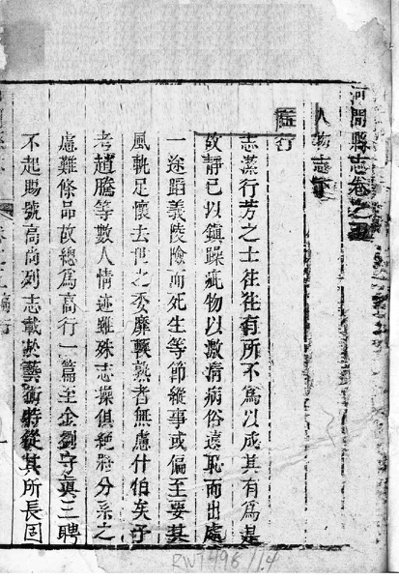 河間縣志卷之
人物志下
行
志潔行芳之士往往有所不為以成其有為是
故靜已以鎮躁疵物以激清病俗遠恥而出處
一途蹈義陵險而死生等節縱事或偏至要其
風軌足懷去世之委靡軟熟者無慮什伯矣予
考趙騰等數人情迹雖殊志操俱純將分系之
慮難條品故總為高行一篇至金劉守真三聘
不起賜號高尚列志載於藝術特從其所長固
RW1498/14